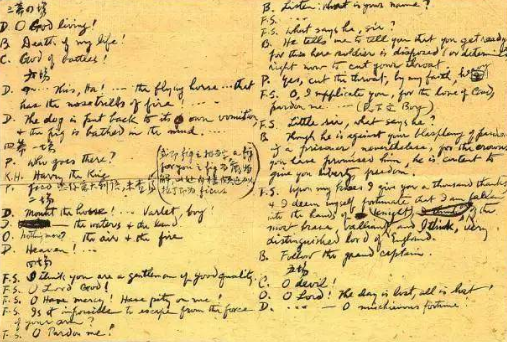 三幕の場
D. O God living!
B. Death of my life!
C. God of battles!
D. .... This, ha! ... the flying horse ... that
has the nosethrells of fire! ....
D. The dog is put back to its own vomiters
& the pig is bathed in the mud....
四幕一場
P. Who goes there?
K.H. Harry the King
P.
D. Mount the horse! ... Varlet, boy
the waters & the land.
O. nothing more? the air & the fire
D. Heaven! ...
F.S. I think you are a gentleman of good quality.
F.S. O Lord God!
F.S. O Have mercy! Have pity on me!
F.S. Is it impossible to escape from the force
of your arm?
F.S. O Pardon me!
B. Listen: what is your name?
F.S. ....
F.S. What says he, sir?
B. He tells me to tell you that you get ready
for this here soldier is disposed (or determined)
right now to cut your throat.
P. Yes, cut the throat, by my faith,
F.S. O, I supplicate you, for the love of God,
pardon me ....
F.S. Little sir, what says he?
B. Though he is against your blasphemy of pardon
of a prisoner, nevertheless, for the crowns
you have promised him, he is content to
give you liberty, freedom.
F.S. Upon my knees I give you a thousand thanks
& I deem myself fortunate that I am fallen
into the hands of (knight) the
most brave, valliant, and I think, very
distinguished lord of England.
B. Follow the grand captain.
C. O devil!
O. O Lord! The day is lost, all is lost!
D. .... O mischievous fortune!